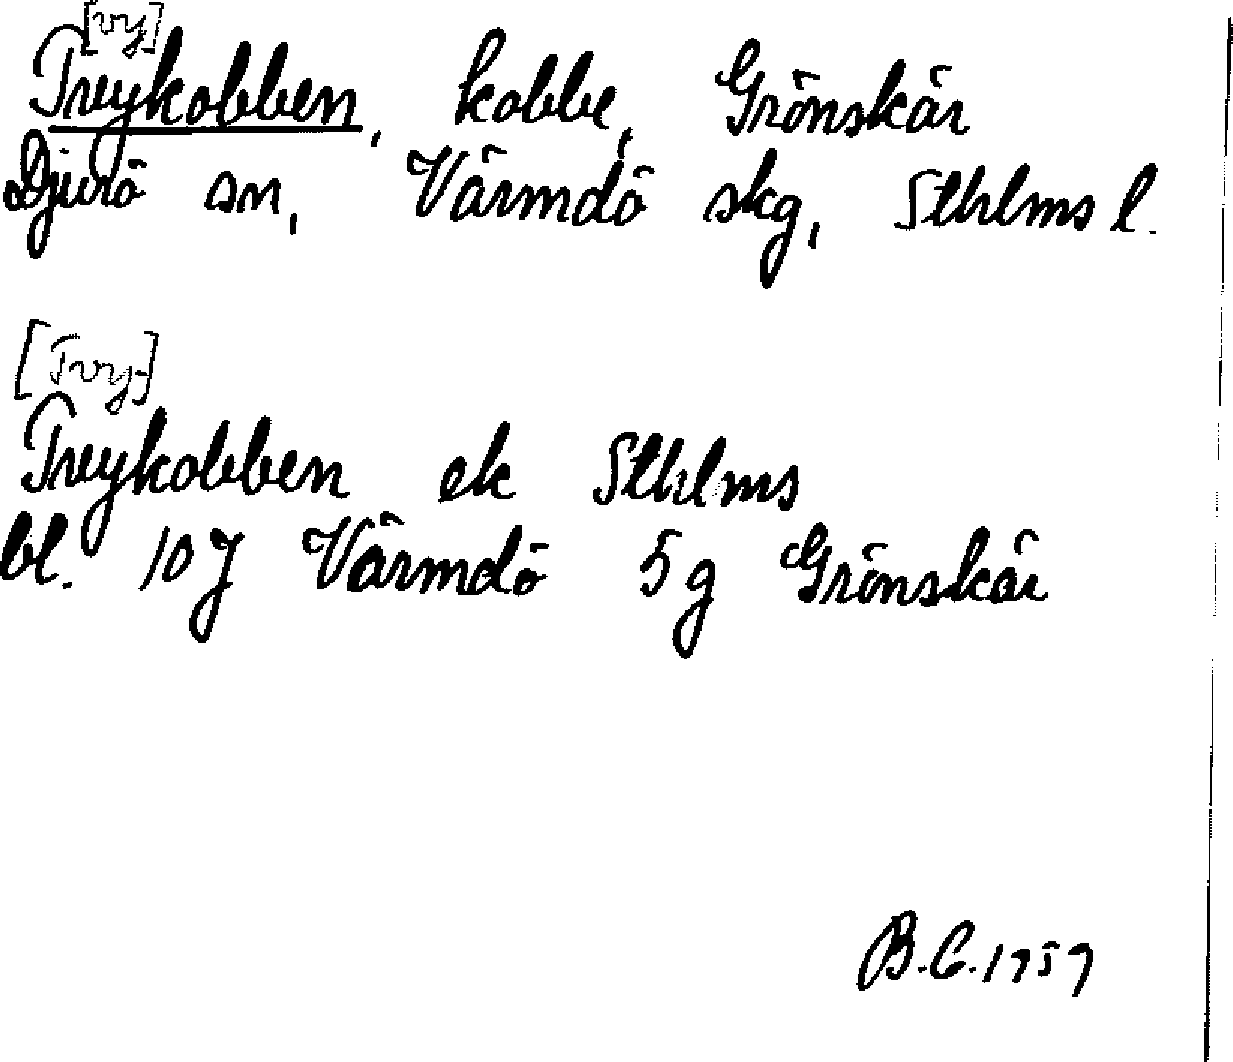 [vy]
Tvykobben, kobbe, Grönskär
Djurö sn, Värmdö skg, Sthlms l.
[Tvy-]
Tvykobben ek Sthlms
bl. 10 J Värmdö 5 g Grönskär
B.C. 1959